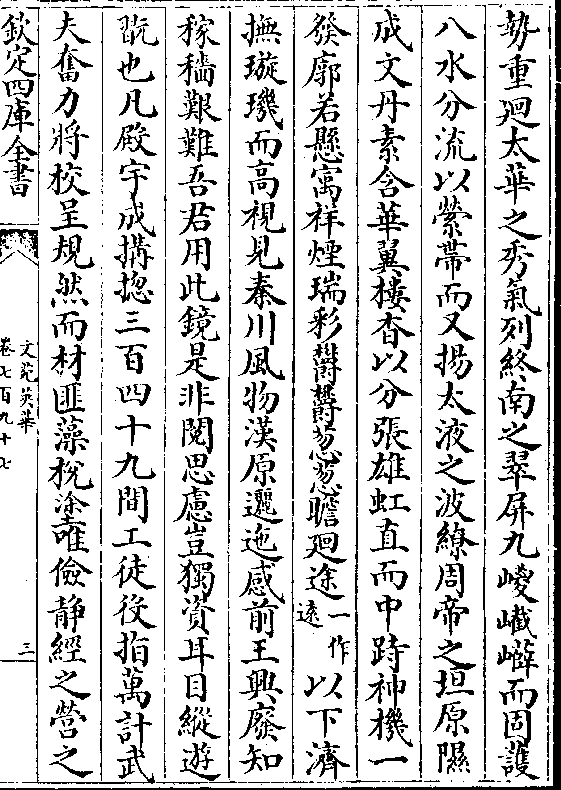 勢重廻太華之秀氣列終南之翠屏九嵕巀嶭而固護
八水分流以縈帶而又揚太液之波繚周帝之垣原隰
成文丹素含華翼棲杳以分張雄虹直而中跱神機一
發廓若懸㝢祥煙瑞彩欝欝葱葱瞻迴途一作遠以下濟
撫璇璣而高視見秦川風物漢原邐迤感前王興廢知
稼穡艱難吾君用此鏡是非閱思慮豈獨資耳目縱遊
翫也凡殿宇成搆揔三百四十九間工徒役指萬計武
夫奮力將校呈規然而材匪藻梲塗唯儉靜經之營之
欽定四庫全書
文苑英華
卷七百九十七
三